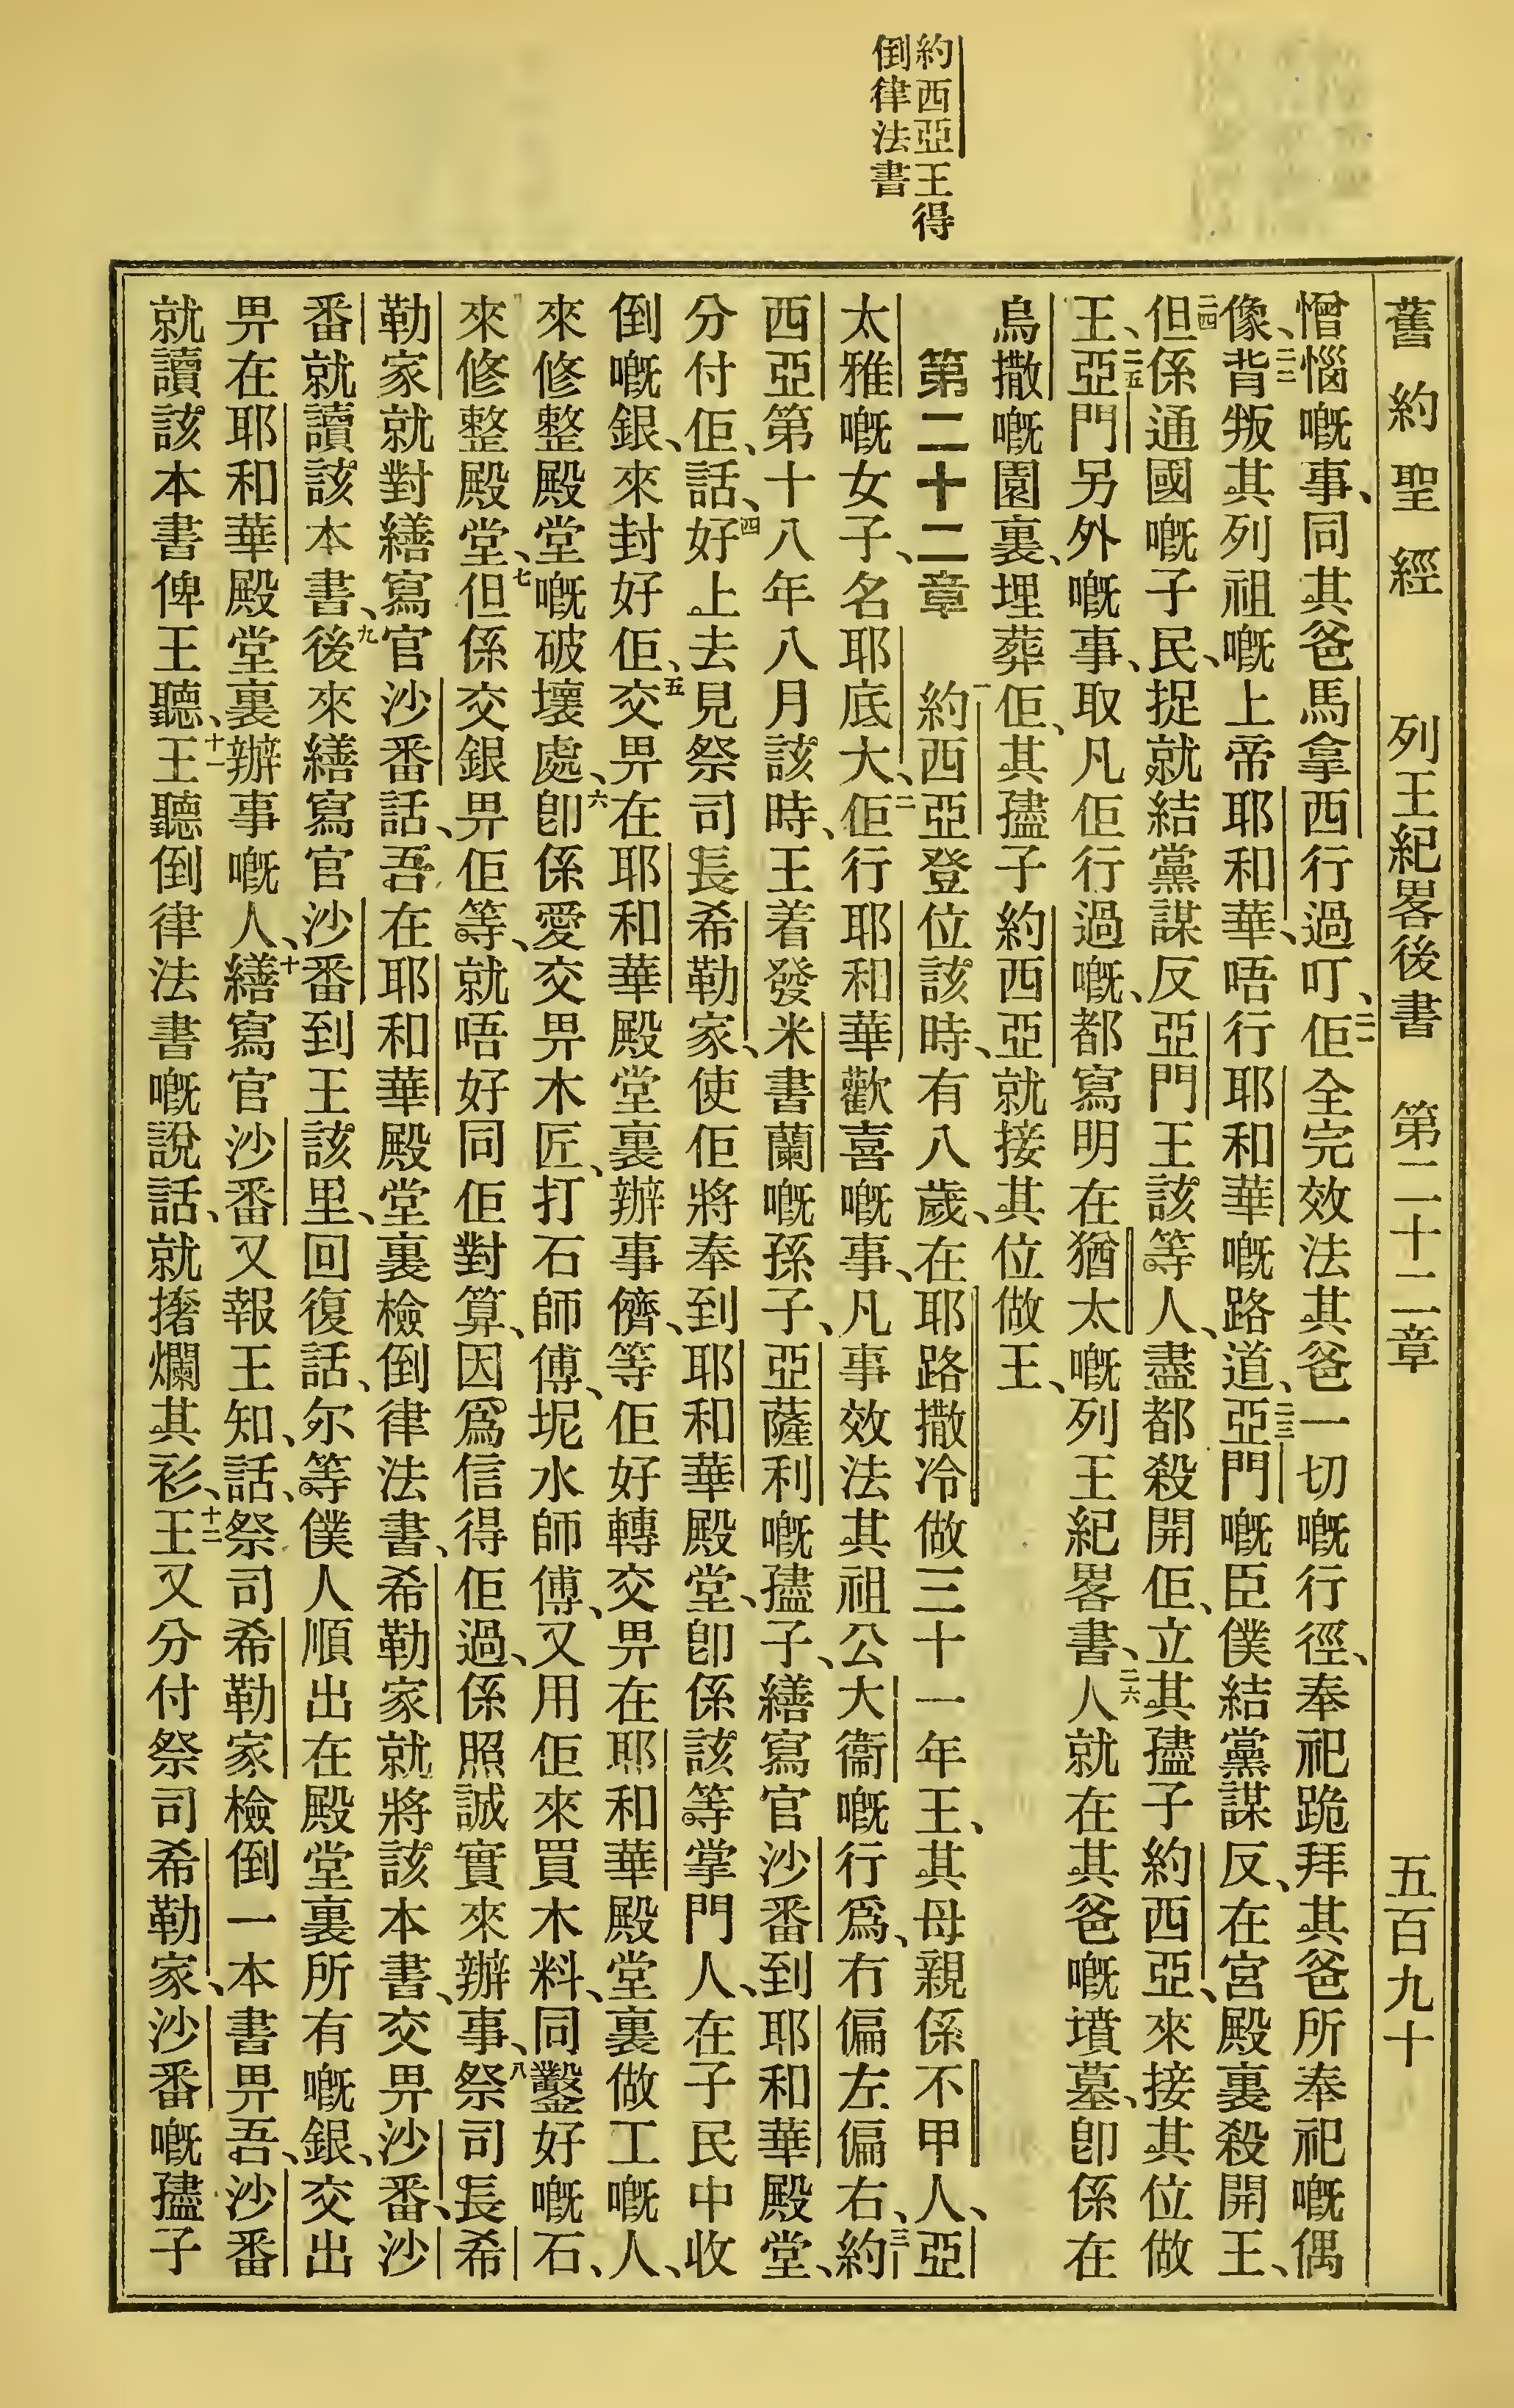 約西亞王得
倒律法書
舊約聖經 列王紀畧後書 第二十二章 五百九十
憎惱嘅事、同其爸馬拿西行過叮、二一佢全完效法其爸一切嘅行徑、奉祀跪拜其爸所奉祀嘅偶
像、二二背叛其列祖嘅上帝耶和華、唔行耶和華嘅路道、二三亞門嘅臣僕結黨謀反、在宮殿裏殺開王、
二四但係通國嘅子民、捉就結黨謀反亞門王該等人、盡都殺開佢、立其孻子約西亞、來接其位做
王、二五亞門另外嘅事、取凡佢行過嘅、都寫明在猶太嘅列王紀畧書、二六人就在其爸嘅墳墓、卽係在
烏撒嘅園裏、埋葬佢、其孻子約西亞就接其位做王、
第二十二章 一約西亞登位該時、有八歲、在耶路撒冷做三十一年王、其母親係不甲人、亞
太雅嘅女子、名耶底大、二佢行耶和華歡喜嘅事、凡事效法其祖公大衞嘅行爲、冇偏左偏右、三約
西亞第十八年八月該時、王着發米書蘭嘅孫子、亞薩利嘅孻子、繕寫官沙番到耶和華殿堂、
分付佢、話、四好上去見祭司長希勒家、使佢將奉到耶和華殿堂、卽係該等掌門人、在子民中收
倒嘅銀、來封好佢、五交畀在耶和華殿堂裏辦事儕、等佢好轉交畀在耶和華殿堂裏做工嘅人、
來修整殿堂嘅破壞處、六卽係愛交畀木匠、打石師傅、坭水師傅、又用佢來買木料、同鑿好嘅石、
來修整殿堂、七但係交銀畀佢等、就唔好同佢對算、因爲信得佢過、係照誠實來辦事、八祭司長希
勒家就對繕寫官沙番話、吾在耶和華殿堂裏檢倒律法書、希勒家就將該本書、交畀沙番、沙
番就讀該本書、九後來繕寫官沙番到王該里、回復話、尔等僕人順出在殿堂裏所有嘅銀、交出
畀在耶和華殿堂裏辦事嘅人、十繕寫官沙番又報王知、話、祭司希勒家檢倒一本書畀吾、沙番
就讀該本書俾王聽、十一王聽倒律法書嘅說話、就撦爛其衫、十二王又分付祭司希勒家、沙番嘅孻子